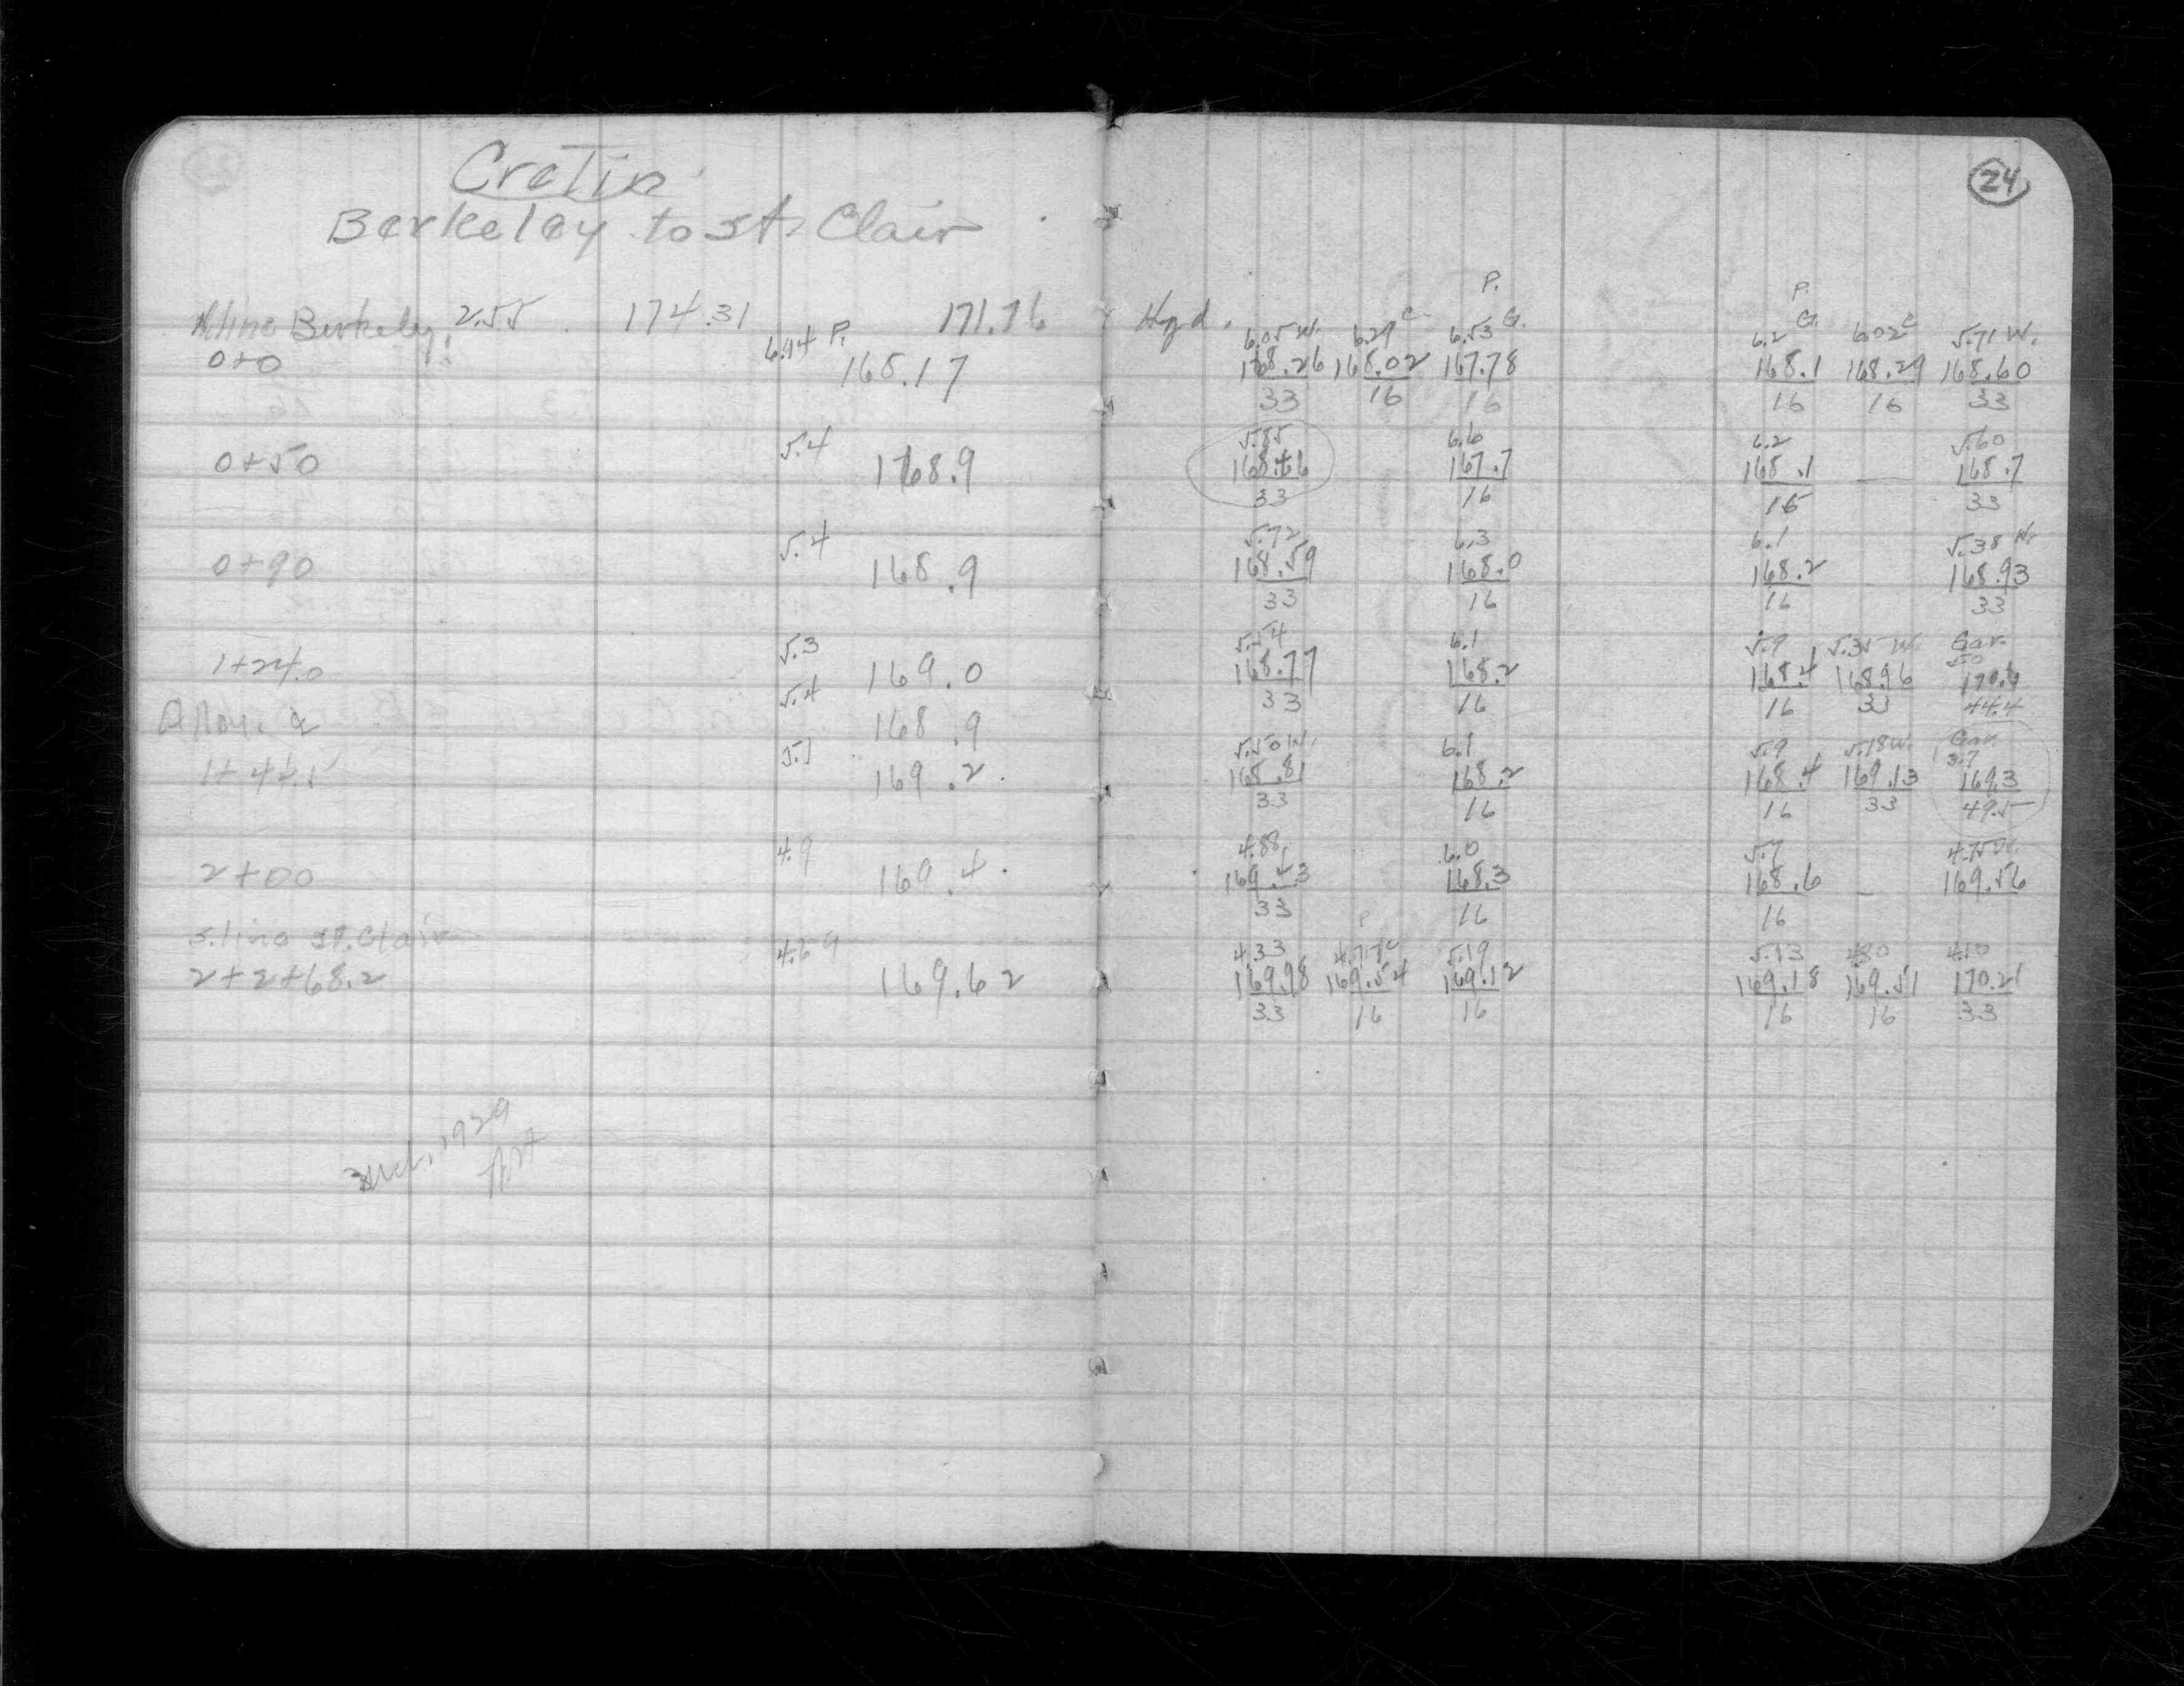 Cretin
Berkeley to St. Clair
N. line Berkely. 2.55 174.31 171.76
0+0 6.14 P. 168.17
0+50 5.4 168.9
0+90 5.4 168.9
1+24.0 5.3 169.0
5.4 168.9
1+44.5 5.1 169.2
2+00 4.9 169.4
S. line St. Clair
2+2+68.2 4.69 169.62
1929
24
P. P.
Hyd. 6.05 W. 6.29 C. 6.53 G. 6.2 G. 6.02 C 5.71 W.
168.26 168.02 167.78 168.1 168.29 168.60
33 16 16 16 16 33
5.85 6.6 6.2 5.60
168.46 167.7 168.1 — 168.7
33 16 16 33
5.72 6.3 6.1 5.38 W.
168.59 168.0 168.2 168.93
33 16 16 33
5.54 6.1 5.9 5.35 W. Gar.
168.77 168.2 168.4 168.96
33 16 16 33 44.4
5.50 W. 6.1 5.9 5.18 W. Gar.
168.81 168.2 168.4 169.13 169.3
33 16 16 33 49.5
4.88 6.0 5.7 4.75 W.
169.43 168.3 168.6 — 169.56
33 16 16
4.33 4.77 C 5.19 5.13 4.80 4.10
169.98 169.54 169.12 169.18 169.51 170.21
33 16 16 16 16 33